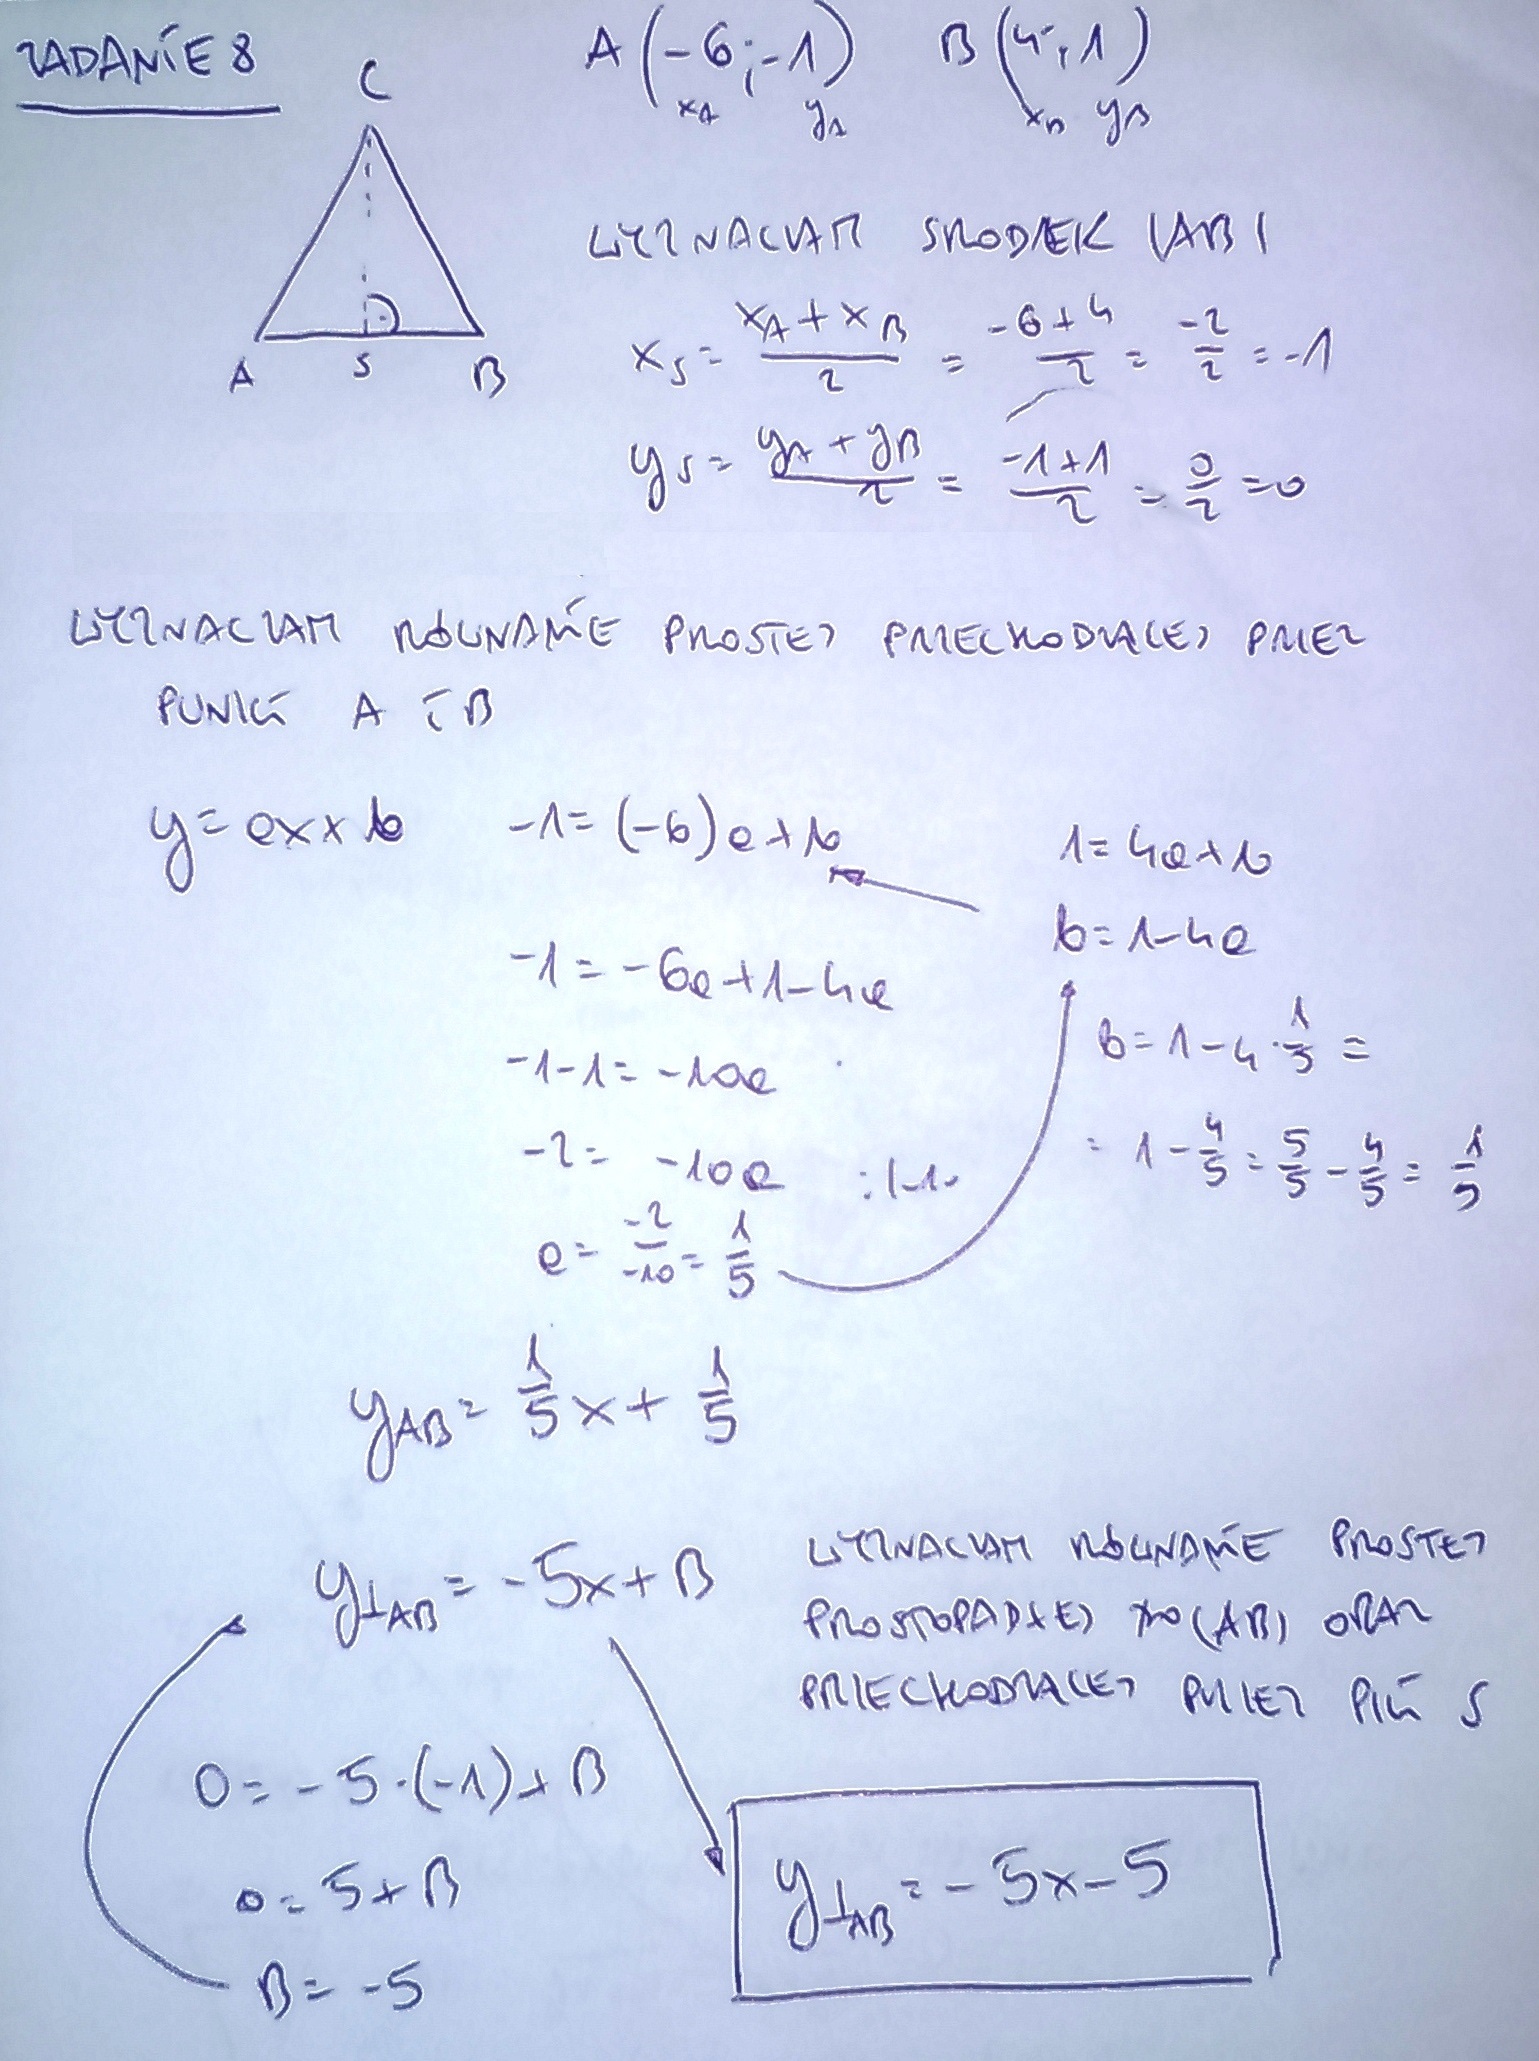 ZADANIE 8
C
A (-6; -1) B (4; 1)
xA yA xB yB
WYZNACZAM ŚRODEK |AB|
xS = (xA + xB)/2 = (-6+4)/2 = -2/2 = -1
A S B
yS = (yA + yB)/2 = (-1+1)/2 = 0/2 = 0
WYZNACZAM RÓWNANIE PROSTEJ PRZECHODZĄCEJ PRZEZ
PUNKTY A I B
y = ax + b
-1 = (-6)a + b
1 = 4a + b
b = 1 - 4a
-1 = -6a + 1 - 4a
b = 1 - 4 · 1/5 =
-1 - 1 = -10a
= 1 - 4/5 = 5/5 - 4/5 = 1/5
-2 = -10a
a = -2/-10 = 1/5
yAB = 1/5 x + 1/5
y⊥AB = -5x + B
WYZNACZAM RÓWNANIE PROSTEJ
PROSTOPADŁEJ DO |AB| ORAZ
PRZECHODZĄCEJ PRZEZ PKT S
0 = -5 · (-1) + B
0 = 5 + B
B = -5
y⊥AB = -5x - 5